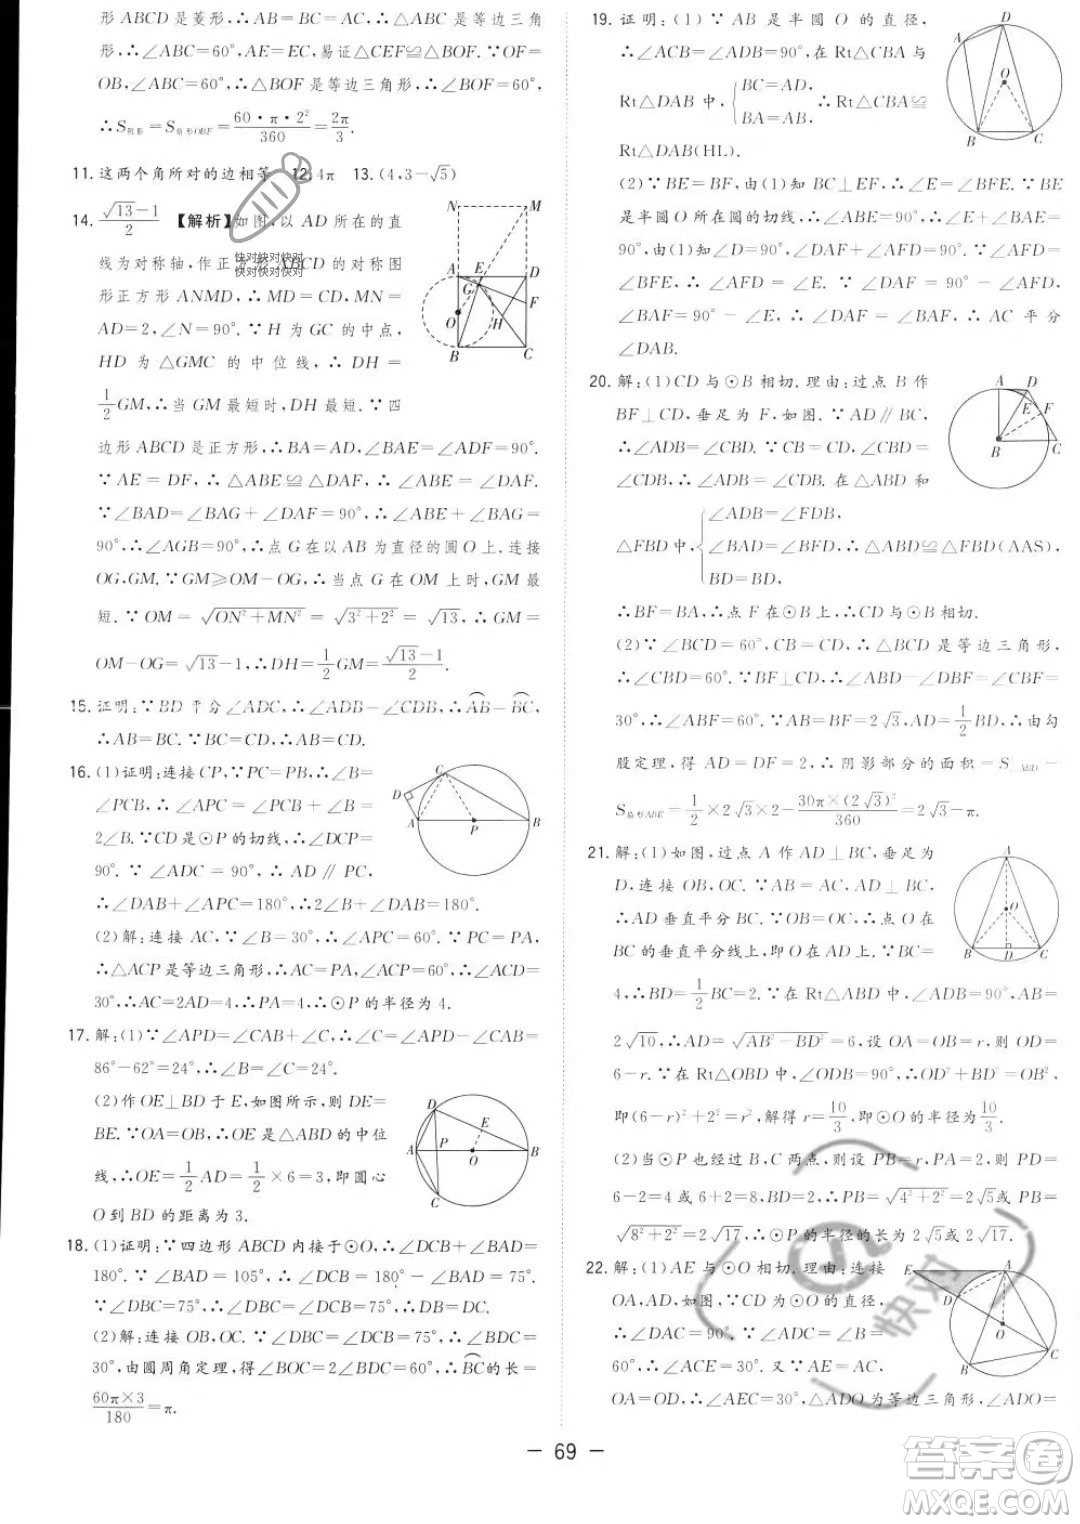 形ABCD是菱形,∴AB=BC.又∵△ABC是正三角
形,∴∠ABC=60°,AE=EC,易证△CEF≌△BOF.∵OF=
OB,∠ABC=60°,∴△BOF是等边三角形,∴∠BOF=60°,
∴S阴影=S扇形OBF=60·π·2²/360=2π/3.
11.这两个角所对的边相等 12.4π 13.(4,3-√5)
14.(√13-1)/2 【解析】如图,以AD所在的直
线为对称轴,作正方形ABCD的对称图
形正方形ANMD,∴MD=CD,MN=
AD=2,∠N=90°.∵H为GC的中点,
HD为△GMC的中位线,∴DH=
1/2GM,∴当GM最短时,DH最短.∵四
边形ABCD是正方形,∴BA=AD,∠BAE=∠ADF=90°.
∵AE=DF,∴△ABE≌△DAF,∴∠ABE=∠DAF.
∵∠BAD=∠BAG+∠DAF=90°,∴∠ABE+∠BAG=
90°,∴∠AGB=90°,∴点G在以AB为直径的圆O上,连接
OG,GM.∵GM≥OM-OG,∴当点G在OM上时,GM最
短.∵OM=√(ON²+MN²)=√(3²+2²)=√13,∴GM=
OM-OG=√13-1,∴DH=1/2GM=(√13-1)/2.
15.证明:∵BD平分∠ADC,∴∠ADB=∠CDB,∴AB=BC,
∴AB=BC.∵BC=CD,∴AB=CD.
16.(1)证明:连接CP,∵PC=PB,∴∠B=
∠PCB,∴∠APC=∠PCB+∠B=
2∠B.∵CD是⊙P的切线,∴∠DCP=
90°.∵∠ADC=90°,∴AD∥PC,
∴∠DAB+∠APC=180°,∴2∠B+∠DAB=180°.
(2)解:连接AC,∵∠B=30°,∴∠APC=60°.∵PC=PA,
∴△ACP是等边三角形,∴AC=PA,∠ACP=60°,∴∠ACD=
30°,∴AC=2AD=4,∴PA=4,∴⊙P的半径为4.
17.解:(1)∵∠APD=∠CAB+∠C,∴∠C=∠APD-∠CAB=
86°-62°=24°,∴∠B=∠C=24°.
(2)作OE⊥BD于E,如图所示,则DE=
BE.∵OA=OB,∴OE是△ABD的中位
线,∴OE=1/2AD=1/2×6=3,即圆心
O到BD的距离为3.
18.(1)证明:∵四边形ABCD内接于⊙O,∴∠DCB+∠BAD=
180°.∵∠BAD=105°,∴∠DCB=180°-105°=75°.
∵∠DBC=75°,∴∠DCB=∠DBC,∴DB=DC.
(2)解:连接OB,OC.∵∠DCB=∠DBC=75°,∴∠BDC=
30°,由圆周角定理,得∠BOC=2∠BDC=60°,∴BC的长=
60π×3/180=π.
19.证明:(1)∵AB是半圆O的直径,
∴∠ACB=∠ADB=90°,在Rt△CBA与
Rt△DAB中,{BC=AD, BA=AB, ∴Rt△CBA≌
Rt△DAB(HL).
(2)∵BE=BF,由(1)知BC⊥EF,∴∠E=∠BFE.∵BE
是半圆O所在圆的切线,∴∠ABE=90°,∴∠E+∠BAE=
90°,由(1)知∠D=90°,∴∠DAF+∠AFD=90°.∵∠AFD=
∠BFE,∴∠AFD=∠E.∵∠DAF=90°-∠AFD,
∠BAF=90°-∠E,∴∠DAF=∠BAF,∴AC平分
∠DAB.
20.解:(1)CD与⊙B相切.理由:过点B作
BF⊥CD,垂足为F,如图.∵AD∥BC,
∴∠ADB=∠CBD.∵CB=CD,∴∠CBD=
∠CDB,∴∠ADB=∠CDB.在△ABD和
△FBD中,{∠ADB=∠FDB, ∠BAD=∠BFD, BD=BD, ∴△ABD≌△FBD(AAS),
∴BF=BA,∴点F在⊙B上,∴CD与⊙B相切.
(2)∵∠BCD=60°,CB=CD,∴△BCD是等边三角形,
∴∠CBD=60°.∵BF⊥CD,∴∠ABD=∠DBF=∠CBF=
30°,∴∠ABF=60°.∵AB=BF=2√3,AD=1/2BD,∴由勾
股定理,得AD=DF=2,∴阴影部分的面积=S△ABD-
S扇形ABE=1/2×2√3×2-30π×(2√3)²/360=2√3-π.
21.解:(1)如图,过点A作AD⊥BC,垂足为
D,连接OB,OC.∵AB=AC,AD⊥BC,
∴AD垂直平分BC.∵OB=OC,∴点O在
BC的垂直平分线上,即O在AD上.∵BC=
4,∴BD=1/2BC=2.∵在Rt△ABD中,∠ADB=90°,AB=
2√10,∴AD=√(AB²-BD²)=6,设OA=OB=r,则OD=
6-r.∵在Rt△OBD中,∠BDO=90°,∴OD²+BD²=OB²,
即(6-r)²+2²=r²,解得r=10/3,即⊙O的半径为10/3.
(2)当⊙P也经过B,C两点,则设PB=PC=r,∵PA=4,则PD=
6-2=4或6+2=8,∴PB=√(4²+2²)=2√5或PB=
√(8²+2²)=2√17,∴⊙P的半径的长为2√5或2√17.
22.解:(1)AE与⊙O相切.理由:连接
OA,AD,如图,∵CD为⊙O的直径,
∴∠DAC=90°.∵∠ADC=∠B=
60°,∴∠ACE=30°.又∵AE=AC,
OA=OD,∴∠AEC=30°,△ADO为等边三角形,∠ADO=
— 69 —
快对快对快对
快对快对快对
快对
答案圈
MXQE.COM